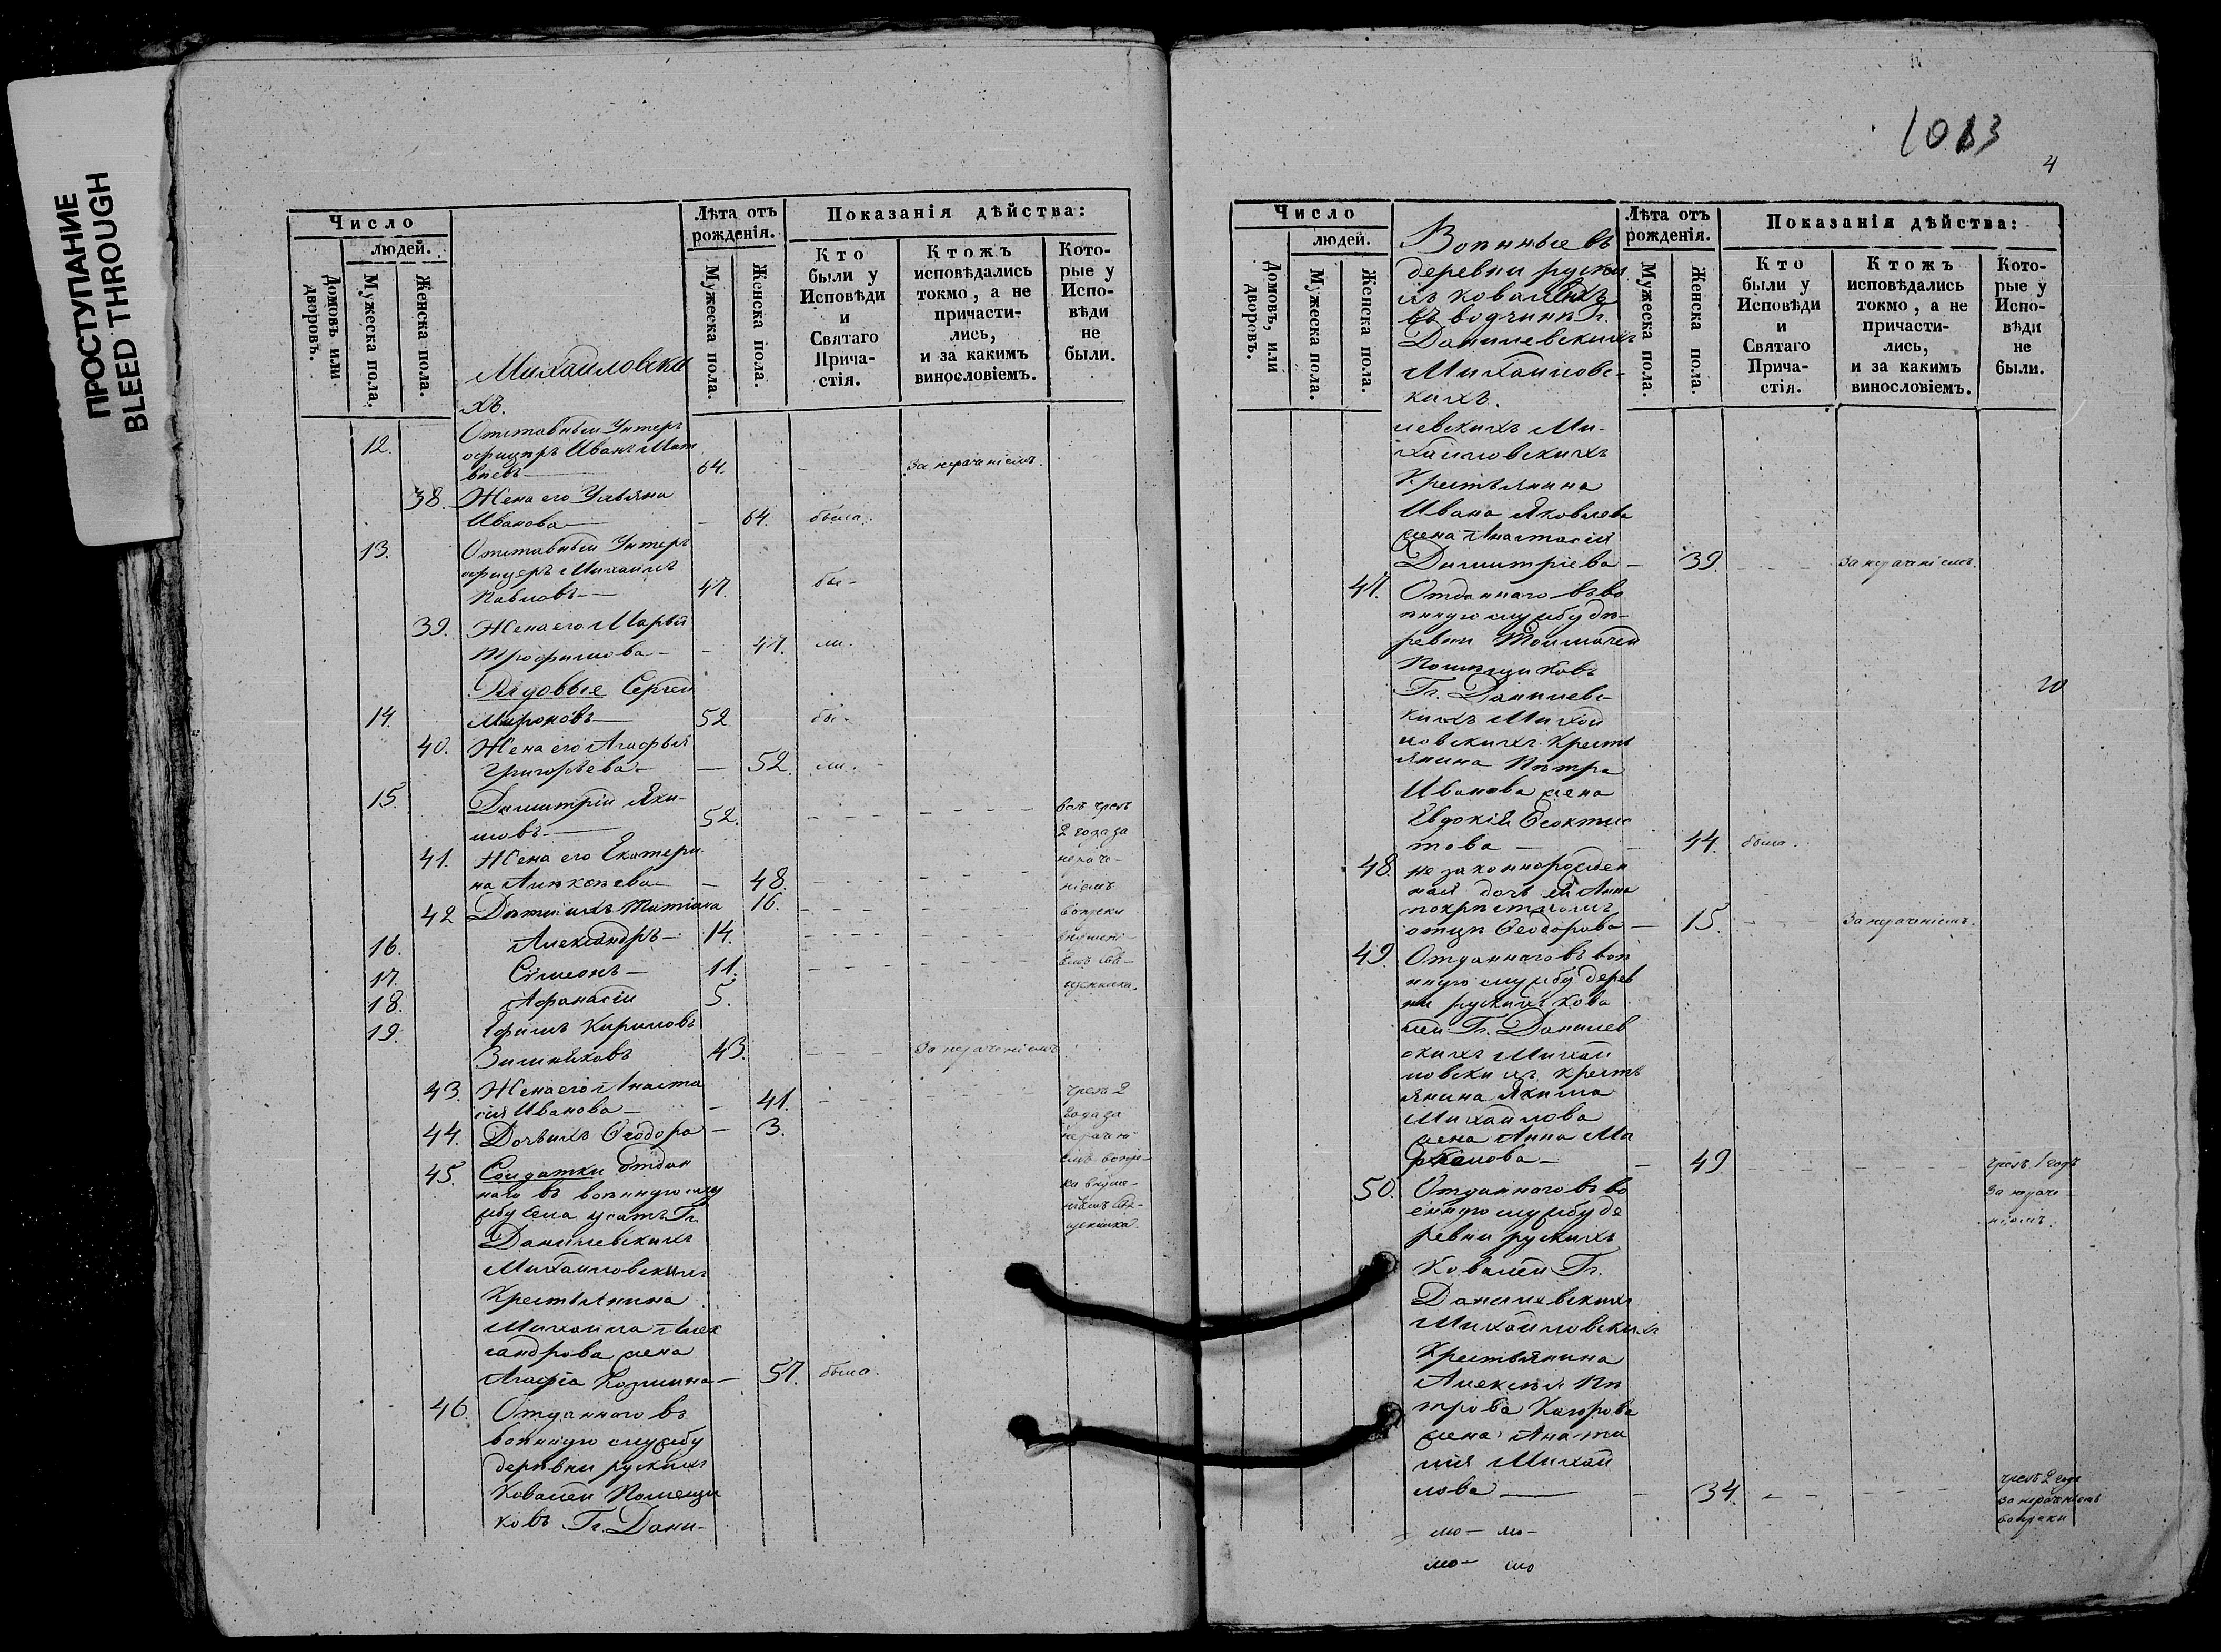 ПРОСТУПАНИЕ
BLEED THROUGH
Число
людей.
Домовъ или дворовъ.
Мужеска пола.
Женска пола.
Лѣта отъ рожденія.
Мужеска пола.
Женска пола.
Показанія дѣйства:
Кто были у Исповѣди и Святаго Прича-стія.
Ктожъ исповѣдались токмо, а не причасти-лись, и за какимъ винословіемъ.
Кото-рые у Испо-вѣди не были.
Михайловски
хъ.
12. Отставный Унтеръ
офицеръ Иванъ Мат
вѣевъ — 64. — За нераченіемъ.
38. Жена его Ульяна
Иванова — 64. была.
13. Отставный Унтеръ
офицеръ Михаилъ
Павловъ — 47. бы-
39. Жена его Марѳа
Трофимова — 47. ли.
Рядовые Сергей
14. Мироновъ — 52 бы-
40. Жена его Агафья
Григорьева — 52. ли.
15. Димитрій Яки-
мовъ — 52. чрезъ
2 года за
41. Жена его Екатери
нераче-
на Алексѣева — 48.
ніемъ
42 Дѣти ихъ Татіана 16.
вопреки
16. Александръ — 14.
17. Сѵмеонъ — 11.
18. Афанасій 5.
19. Ефимъ Кириловъ
Зимняковъ 43. За нераченіемъ
43. Жена его Анаста
чрезъ 2
сія Иванова — 41.
года за
44. Дочь ихъ Ѳеодора — 3.
нерачені
емъ вопре-
45. Солдатки отдан
наго въ военную слу
жбу села Усатъ Гг.
Данилевскихъ
Михайловскихъ
Крестьянина
Михаила Алек
сандрова жена
Агафіа Козмина — 57. была.
46. Отданнаго въ
военную службу
деревни рускихъ
Ковалей Помещи
ковъ Гг. Дани-
1083
4
Число
людей.
Домовъ, или дворовъ.
Мужеска пола.
Женска пола.
Лѣта отъ рожденія.
Мужеска пола.
Женска пола.
Показанія дѣйства:
Кто были у Исповѣди и Святаго Прича-стія.
Ктожъ исповѣдались токмо, а не причасти-лись, и за какимъ винословіемъ.
Кото-рые у Испо-вѣди не были.
Военные въ
деревни руски
хъ коваляхъ
въ вотчинѣ г.
Данилевскихъ
Михайловс-
кихъ.
левскихъ Ми-
хайловскихъ
Крестьянина
Ивана Яковлева
жена Анастасія
Димитріева — 39. За нераченіемъ.
47. Отданнаго въ во
енную службу де-
ревни
Помещиковъ
Гг. Данилевс-
кихъ Михай
ловскихъ Кресть
янина Петра
Иванова жена
Евдокія Ѳеоктис
това — 44. была.
48. не законнорожден
ная дочь ей Анна
покрестному
отцу Ѳеодорова — 15. За нераченіемъ.
49. Отданнаго въ вое
нную службу дерев
ни рускихъ кова
лей Гг. Данилев
скихъ Михай
ловскихъ кресть
янина Якима
Михайлова
жена Анна Ма
ркелова — 49 чрезъ 1 годъ
50. Отданнаго въ во
за нераче-
енную службу де
ніемъ.
ревни рускихъ
Ковалей Гг.
Данилевскихъ
Михайловскихъ
Крестьянина
Алексѣя Пе
трова
жена Анаста
сія Михай
лова — 34. чрезъ 2 года
за нераченіемъ
вопреки
20